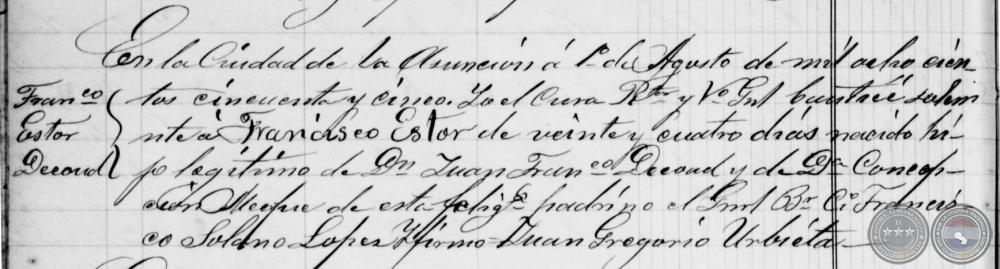 En la Ciudad de la Asuncion á 1º de Agosto de mil ocho cien-
tos cincuenta y cinco. Yo el Cura Rtor y Vº Gnl bautisé solem
nte á Francisco Estor de veinte y cuatro dias nacido hi-
jo legítimo de Dn Juan Franco Decoud y de Da Concep-
cion Meque de esta feliga padrino el Gnrl Br Co Francis
co Solano Lopez Yfirmo = Juan Gregorio Urbieta
Franco
Estor
Decoud